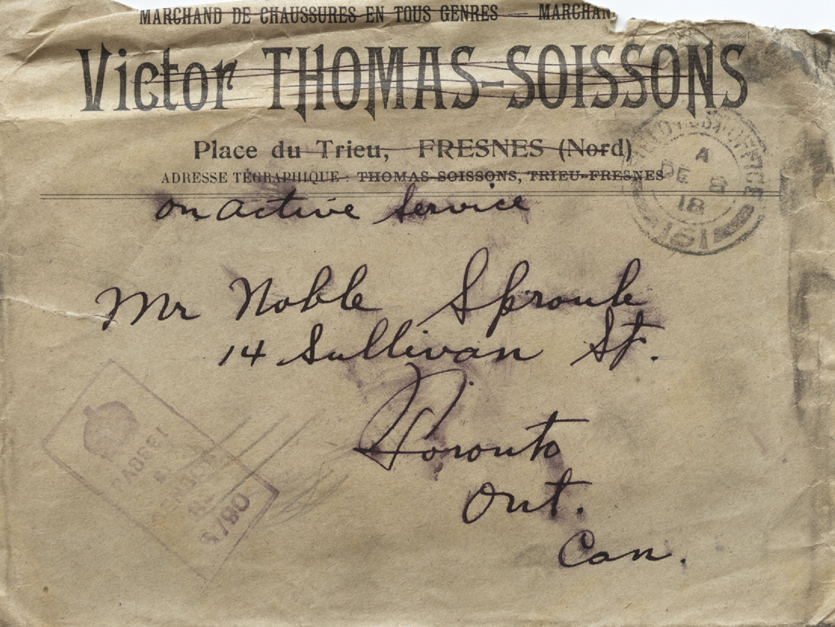 MARCHAND DE CHAUSSURES EN TOUS GENRES — MARCHAN
Victor THOMAS-SOISSONS
Place du Trieu, FRESNES (Nord)
ADRESSE TÉGRAPHIQUE: THOMAS-SOISSONS, TRIEU-FRESNES
FIELD POST OFFICE
A
DE 8
18
121
on active Service
Mr Noble Sproule
14 Sullivan St.
Toronto
Ont.
Can.